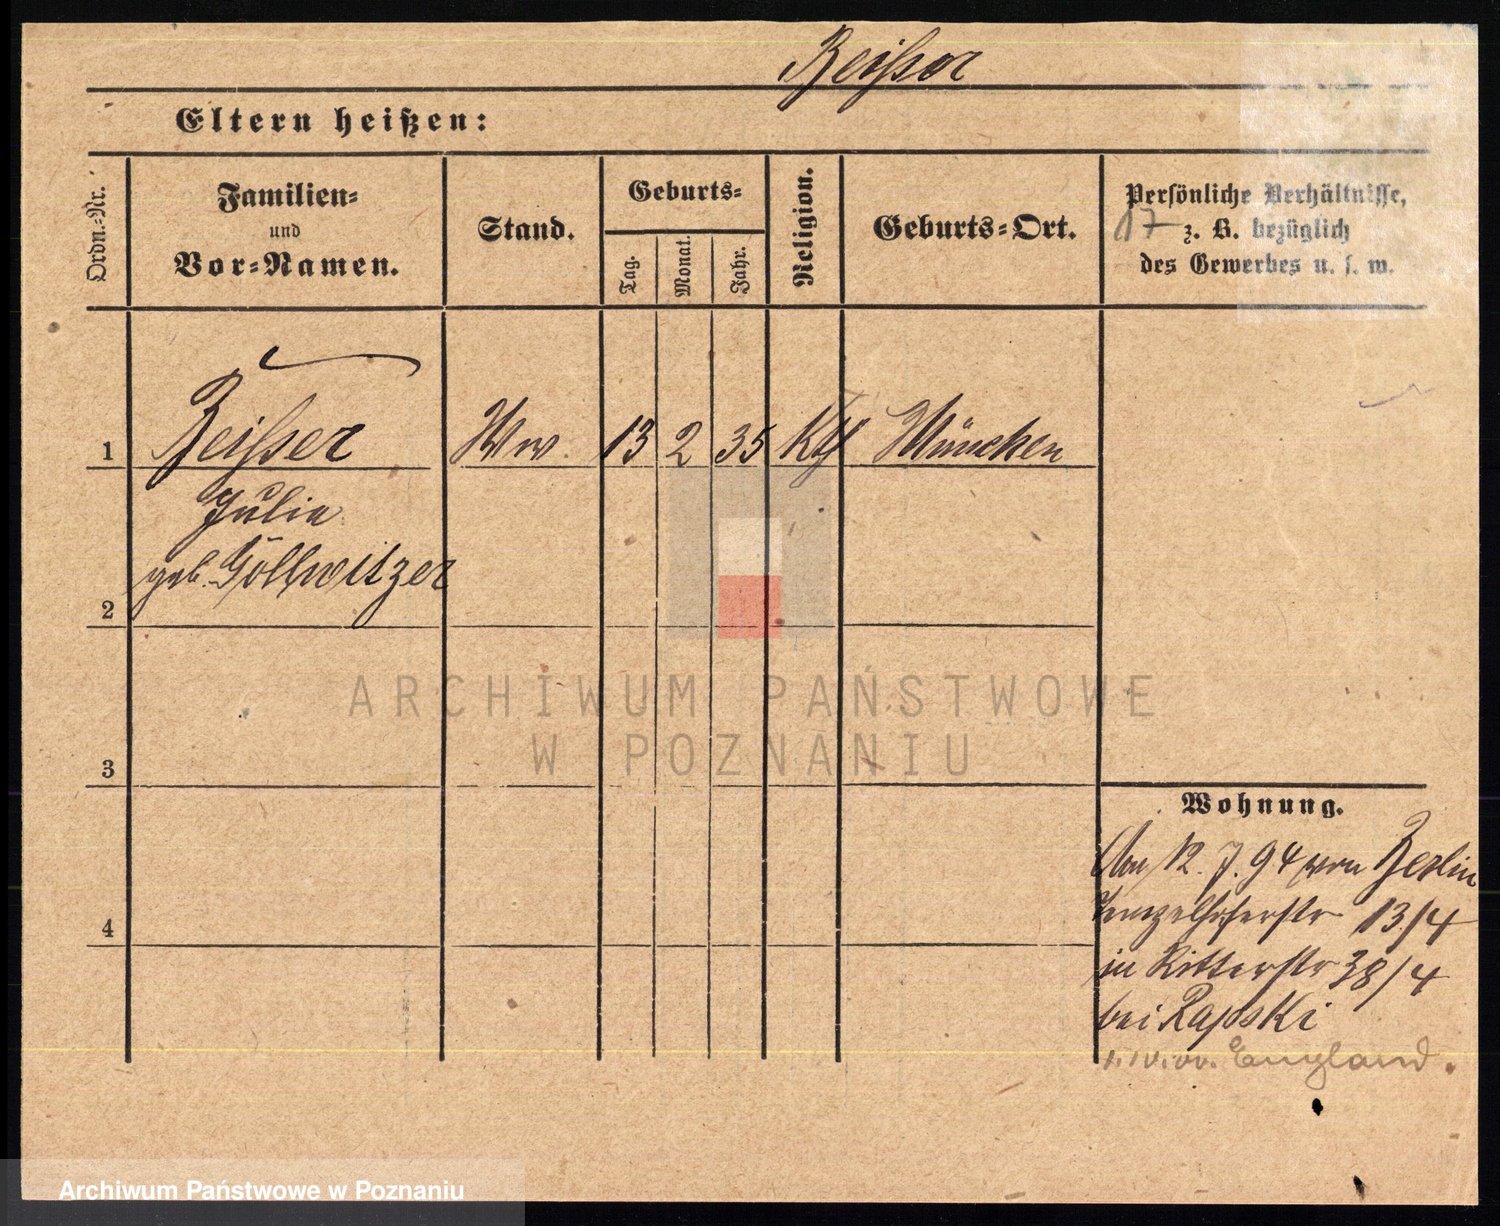 Beißer
Eltern heißen:
Ordn.-Nr.
Familien-
und
Vor-Namen.
Stand.
Geburts-
Tag.
Monat.
Jahr.
Religion.
Geburts-Ort.
Persönliche Verhältnisse,
17 z. B. bezüglich
des Gewerbes u. s. w.
1 Beißer Ww. 13 2 35 Kth München
Julia
geb. Göllwitzer
2
3
4
Wohnung.
12. 7. 94 von Berlin
13/4
in Ritterstr 38/4
bei Rapski
England.
ARCHIWUM PAŃSTWOWE
W POZNANIU
Archiwum Państwowe w Poznaniu